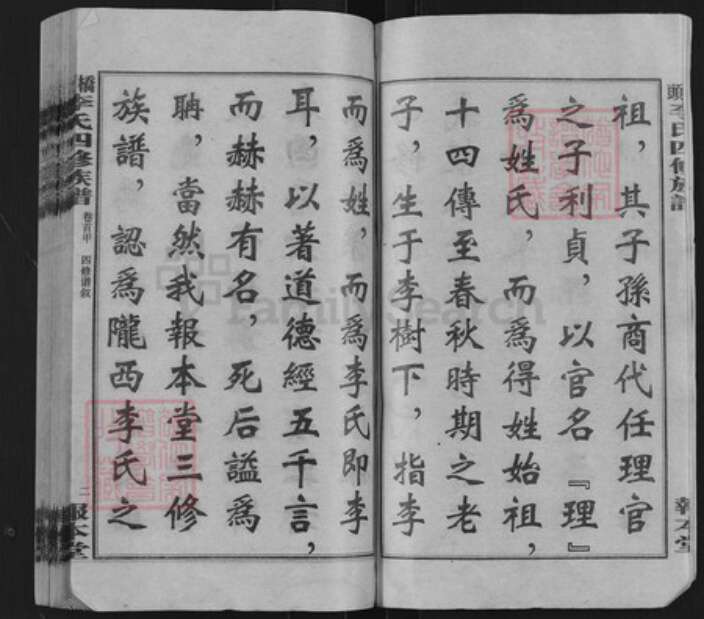 頭李氏四修族譜
報本堂
祖，其子孫商代任理官
之子利貞，以官名『理』
為姓氏，而為得姓始祖，
十四傳至春秋時期之老
子，生于李樹下，指李
而為姓，而為李氏即李
耳，以著道德經五千言，
而赫赫有名，死后謚為
聃，當然我報本堂三修
族譜，認為隴西李氏之
橋李氏四修族譜
卷首甲 四修谱叙
二
報本堂
FamilySearch